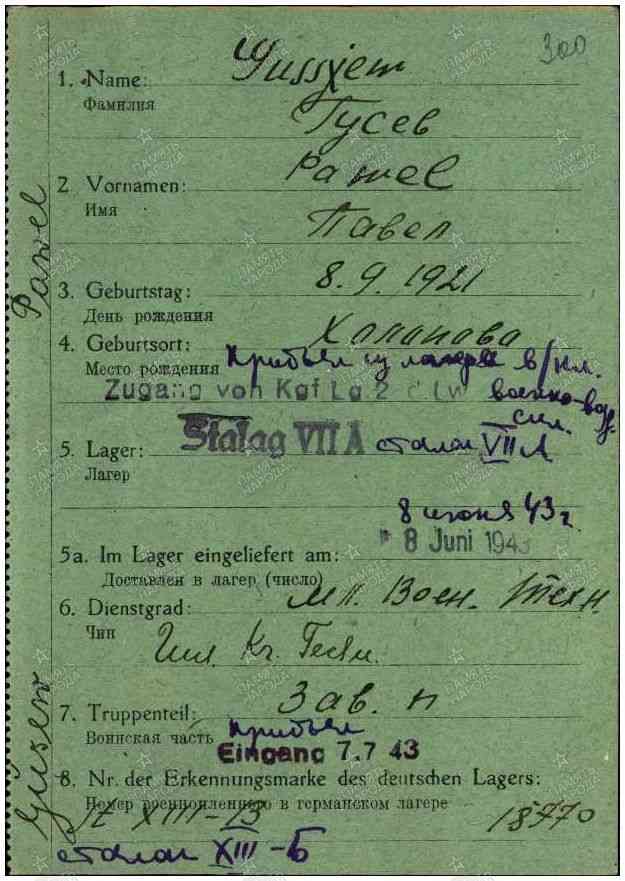 300
1. Name: Gussjew
Фамилия Гусев
2 Vornamen: Pawel
Имя Павел
3. Geburtstag: 8.9.1921
День рождения
4. Geburtsort:
Место рождения Прибыл из лагеря в/пл.
Zugang von Kgf Lg. 2 d Lw военно-возд.
сил.
5. Lager: Stalag VII A сталаг VII А
Лагер
8 июня 43 г.
5a. Im Lager eingeliefert am: 8 Juni 1943
Доставлен в лагер (число)
6. Dienstgrad: Мл. Воен. Техн.
Чин
7. Truppenteil: Зав. п
Воинская часть прибыл
Eingang 7.7 43
8. Nr. der Erkennungsmarke des deutschen Lagers:
Номер военнопленного в германском лагере
St XIII-B 18770
сталаг XIII-Б
Gusew Pawel